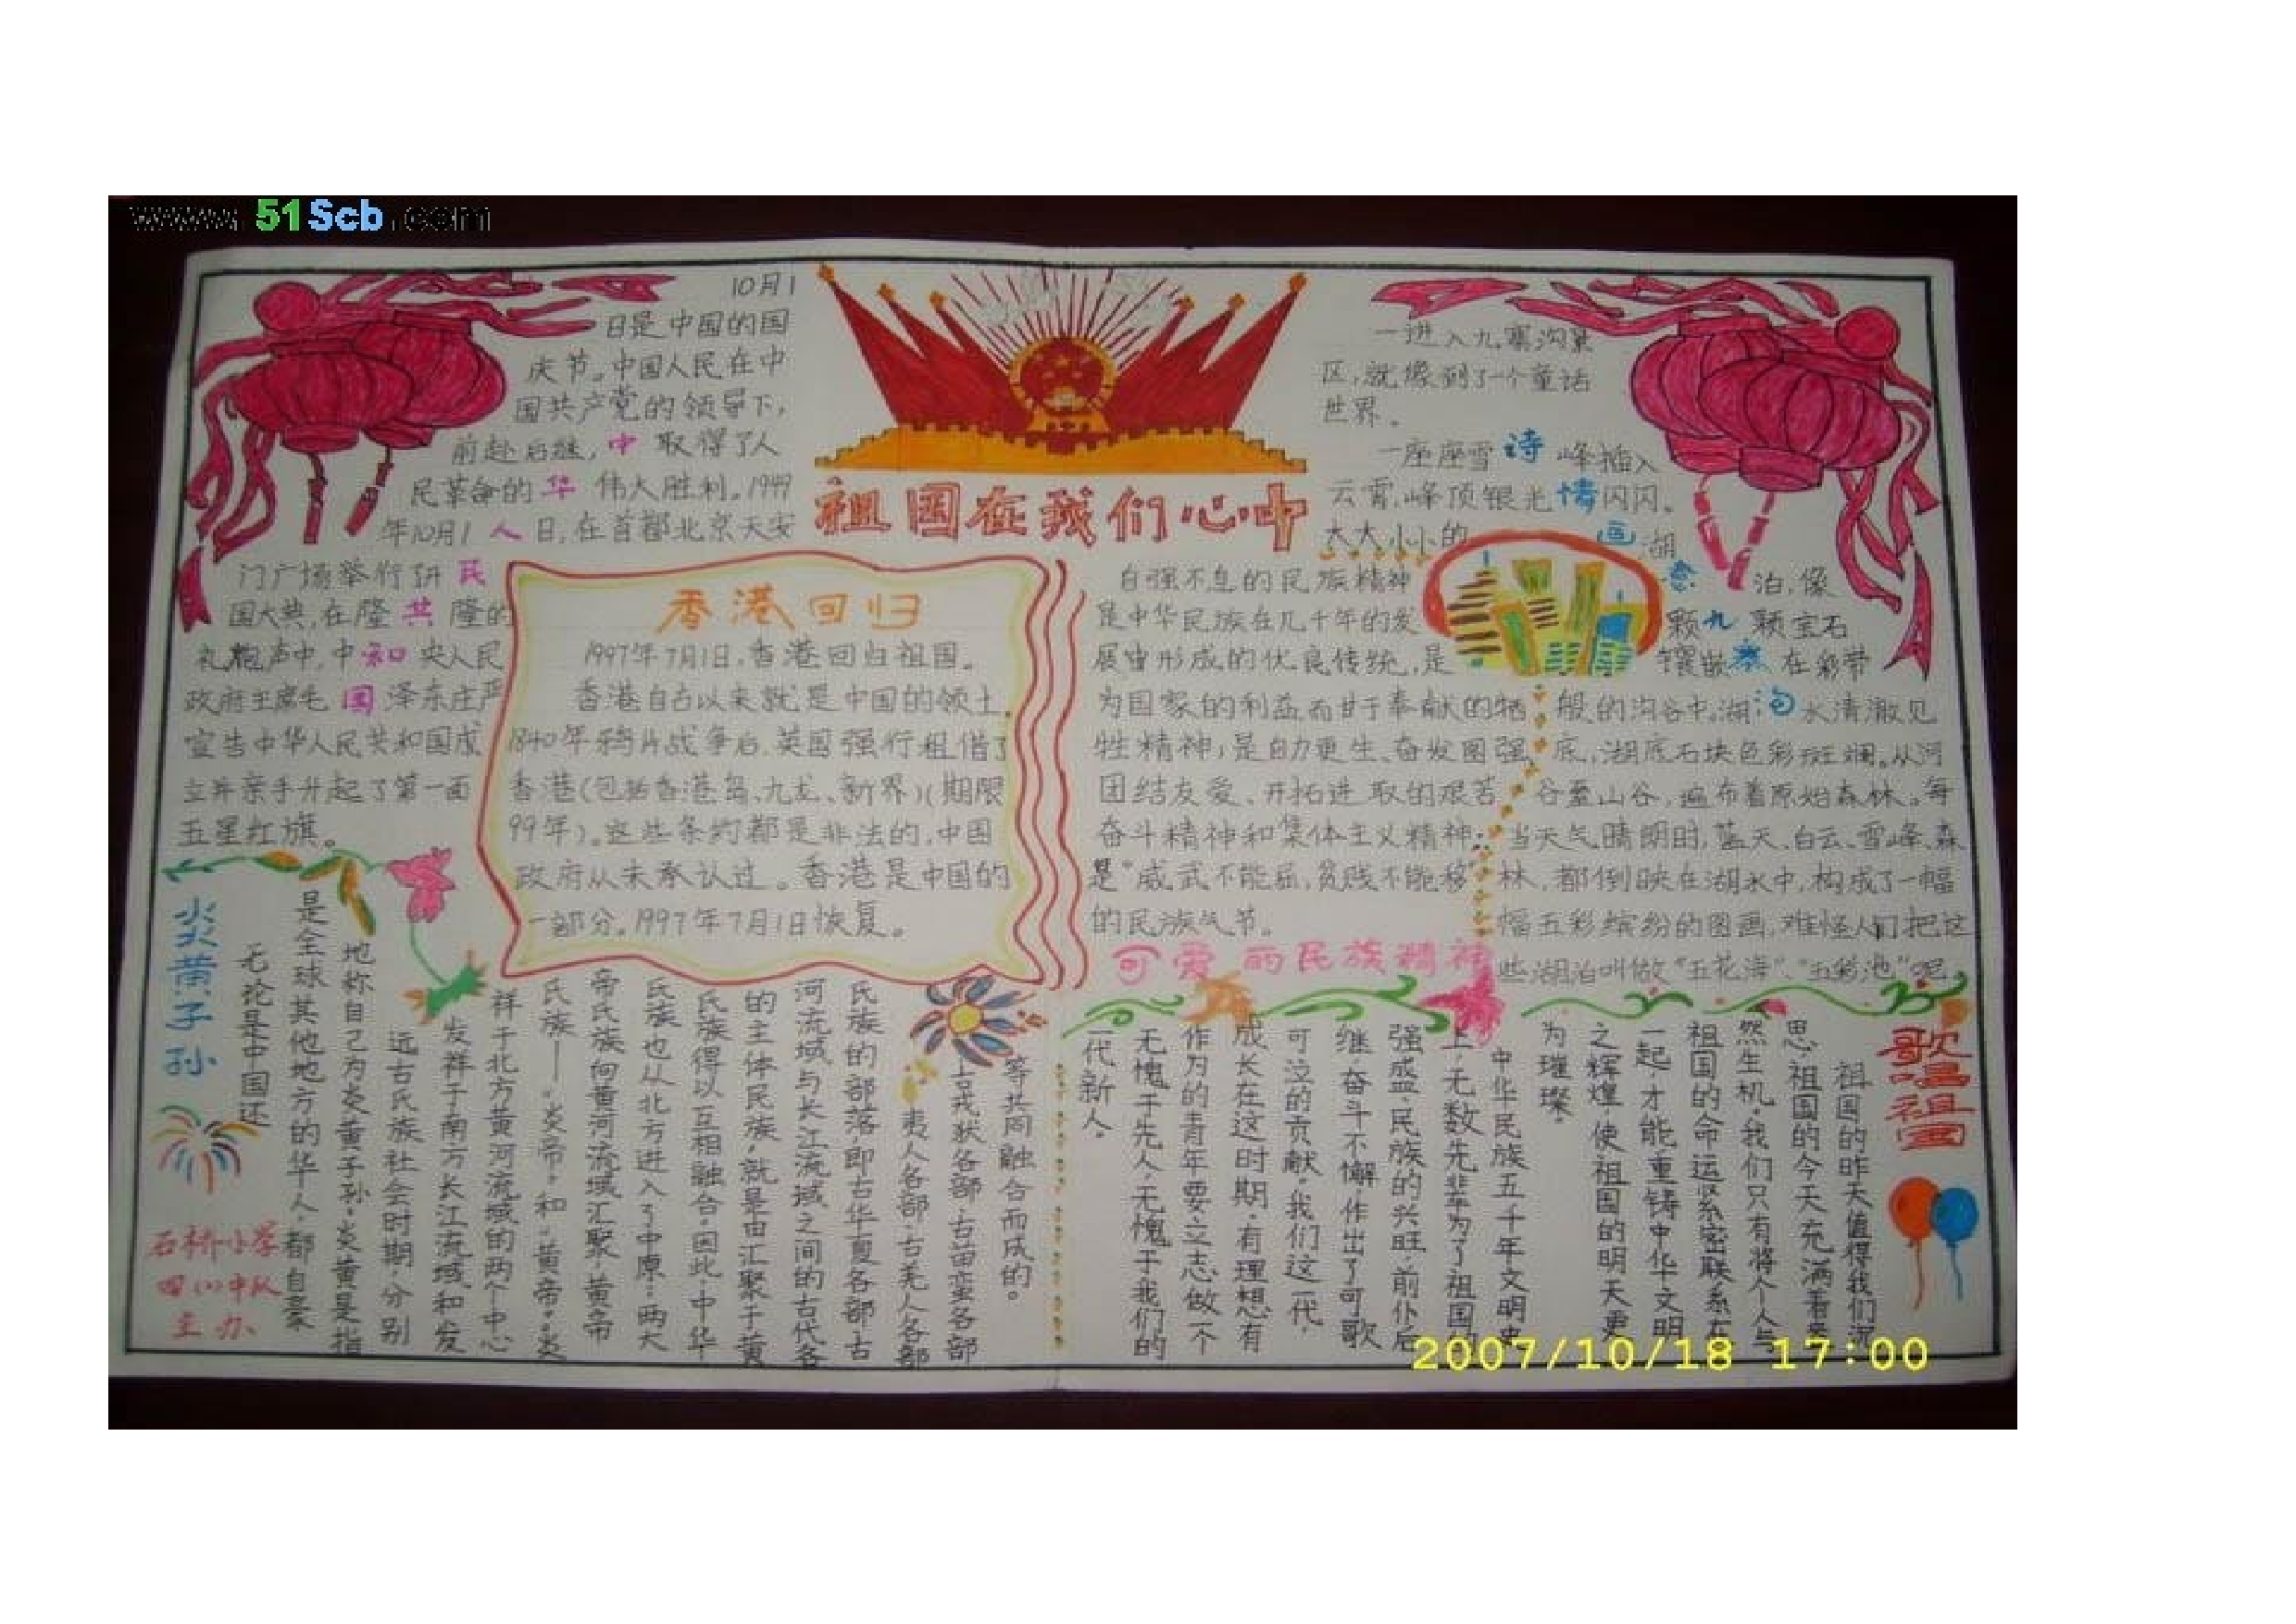 www.51Scb.com
祖国在我们心中
10月1
日是中国的国
庆节。中国人民在中
国共产党的领导下,
前赴后继, 取得了人
民革命的 伟大胜利。1949
年10月1 日,在首都北京天安
门广场举行开
国大典,在隆 隆的
礼炮声中,中 央人民
政府主席毛 泽东庄严
宣告中华人民共和国成
立并亲手升起了第一面
五星红旗。
中华人民共和国
香港回归
1997年7月1日,香港回归祖国。
香港自古以来就是中国的领土。
1840年鸦片战争后,英国强行租借了
香港(包括香港岛、九龙、新界)(期限
99年)。这些条约都是非法的,中国
政府从未承认过。香港是中国的
一部分。1997年7月1日恢复。
自强不息的民族精神
是中华民族在几千年的发
展宙形成的优良传统,是
为国家的利益而甘于奉献的牺
牲精神;是自力更生、奋发图强、
团结友爱、开拓进取的艰苦
奋斗精神和集体主义精神;
是"威武不能屈,贫贱不能移"
的民族气节。
可爱的民族精神
一进入九寨沟景
区,就像到了一个童话
世界。
一座座雪 峰插入
云霄,峰顶银光 闪闪。
大大小小的 湖
泊,像
颗 颗宝石
镶嵌 在彩带
般的沟谷中。湖 水清澈见
底,湖底石块色彩斑斓。从河
谷至山谷,遍布着原始森林。每
当天气晴朗时,蓝天、白云、雪峰、森
林,都倒映在湖水中,构成了一幅
幅五彩缤纷的图画,难怪人们把这
些湖泊叫做"五花海"、"五彩池"呢
诗情画意九寨沟
炎黄子孙
无论是中国还
是全球其他地方的华人,都自豪
地称自己为炎黄子孙。炎黄是指
远古氏族社会时期,分别
发祥于南方长江流域和发
祥于北方黄河流域的两个中心
氏族——"炎帝"和"黄帝"。炎
帝氏族向黄河流域汇聚,黄帝
氏族也从北方进入了中原。两大
氏族得以互相融合。因此,中华
的主体民族,就是由汇聚于黄
河流域与长江流域之间的古代各
氏族的部落,即古华夏各部、古
夷人各部、古羌人各部
古戎狄各部、古苗蛮各部
等共同融合而成的。
歌唱祖国
祖国的昨天值得我们沉
思,祖国的今天充满着盎
然生机。我们只有将个人与
祖国的命运紧密联系在
一起,才能重铸中华文明
之辉煌,使祖国的明天更
为璀璨。
中华民族五千年文明史
上,无数先辈为了祖国的
强盛、民族的兴旺,前仆后
继,奋斗不懈,作出了可歌
可泣的贡献。我们这一代,
成长在这时期,有理想有
作为的青年要立志做一个
无愧于先人,无愧于我们的
一代新人。
石桥小学
四(1)中队
主办
2007/10/18 17:00